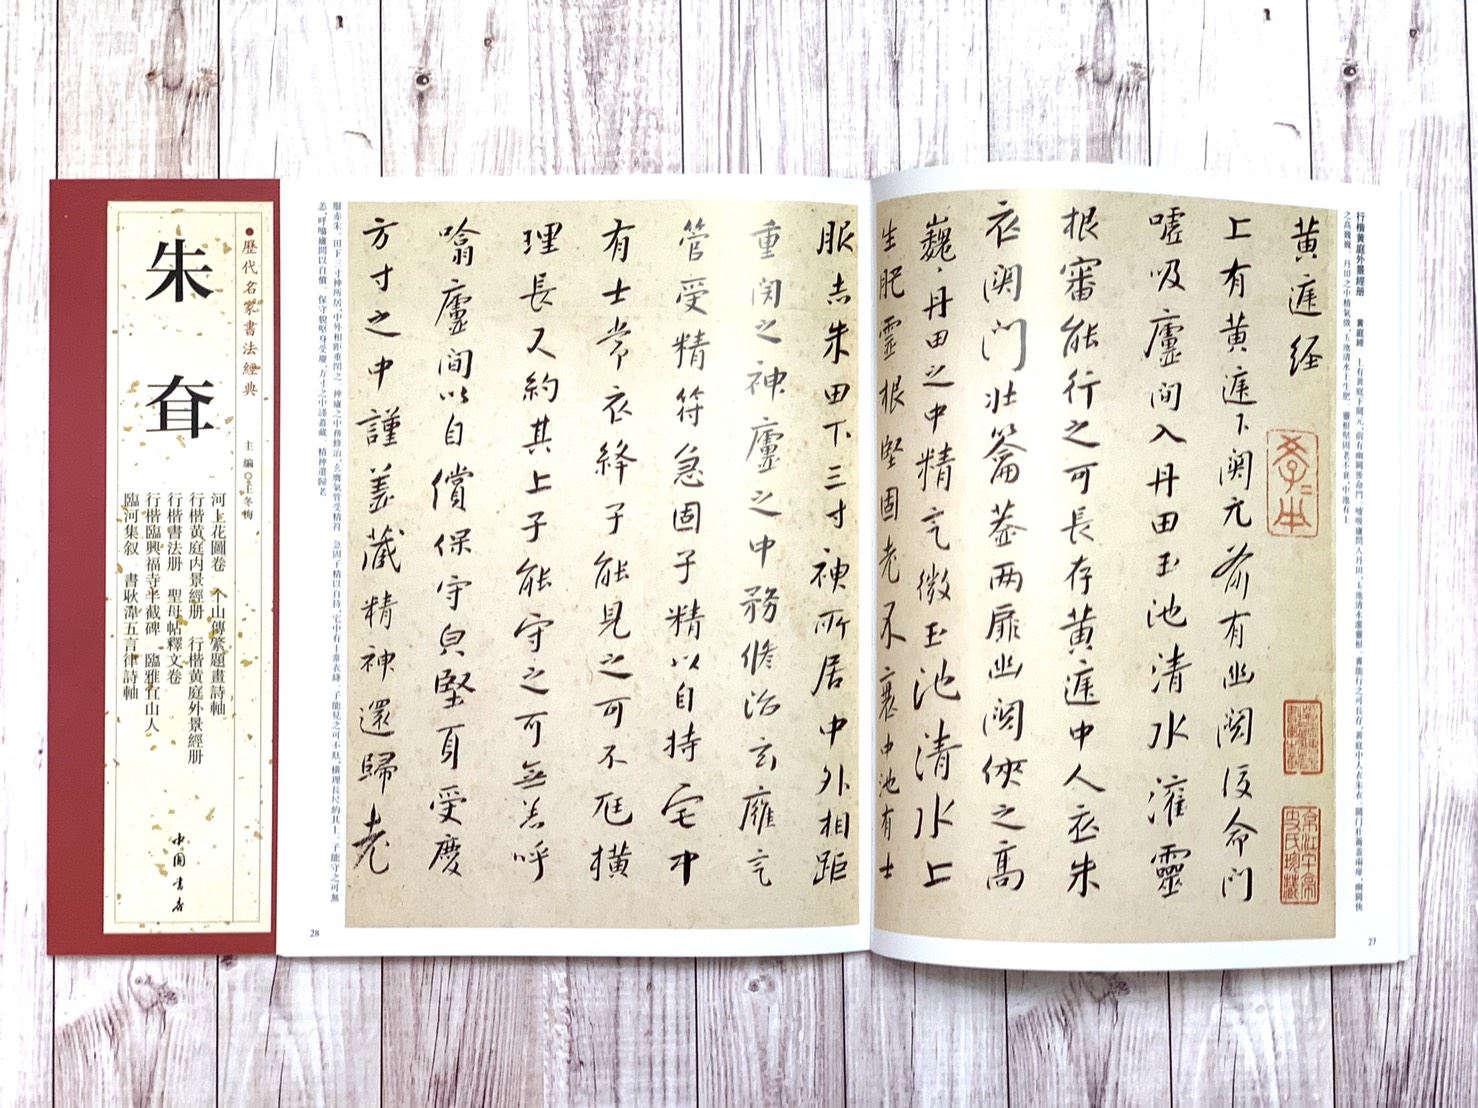 ●歷代名家書法經典
主編◎王冬梅
朱耷
河上花圖卷　个山傳綮題畫詩軸
行楷黄庭内景經册　行楷黄庭外景經册
行楷書法册　聖母帖釋文卷
行楷臨興福寺半截碑　臨雅宜山人
臨河集叙　書耿湋五言律詩軸
中國書店
行楷黄庭外景經册　黄庭經　上有黄庭下關元，前有幽闕後命門。噓吸廬間入丹田，玉池清水灌靈根。審能行之可長存，黄庭中人衣朱衣。關門壯籥蓋兩扉，幽闕俠
之高巍巍，丹田之中精氣微。玉池清水上生肥，靈根堅固老不衰。中池有士
黄庭经
上有黄庭下關元前有幽闕後命門
噓吸廬间入丹田玉池清水灌靈
根審能行之可長存黄庭中人衣朱
衣關门壯籥蓋两扉幽闕俠之高
巍〻丹田之中精氣微玉池清水上
生肥靈根堅固老不衰中池有士
27
服赤朱田下三寸神所居中外相距
重闭之神廬之中務脩治玄膺气
管受精符急固子精以自持宅中
有士常衣絳子能見之可不尫橫
理長尺約其上子能守之可無恙呼
噏廬間以自償保守皃堅身受慶
方寸之中謹蓋藏精神還歸老
服赤朱，田下三寸神所居。中外相距重閉之，神廬之中務修治。玄膺氣管受精符，急固子精以自持。宅中有士常衣絳，子能見之可不尫。橫理長尺約其上，子能守之可無
恙。呼噏廬間以自償，保守貌堅身受慶。方寸之中謹蓋藏，精神還歸老
28